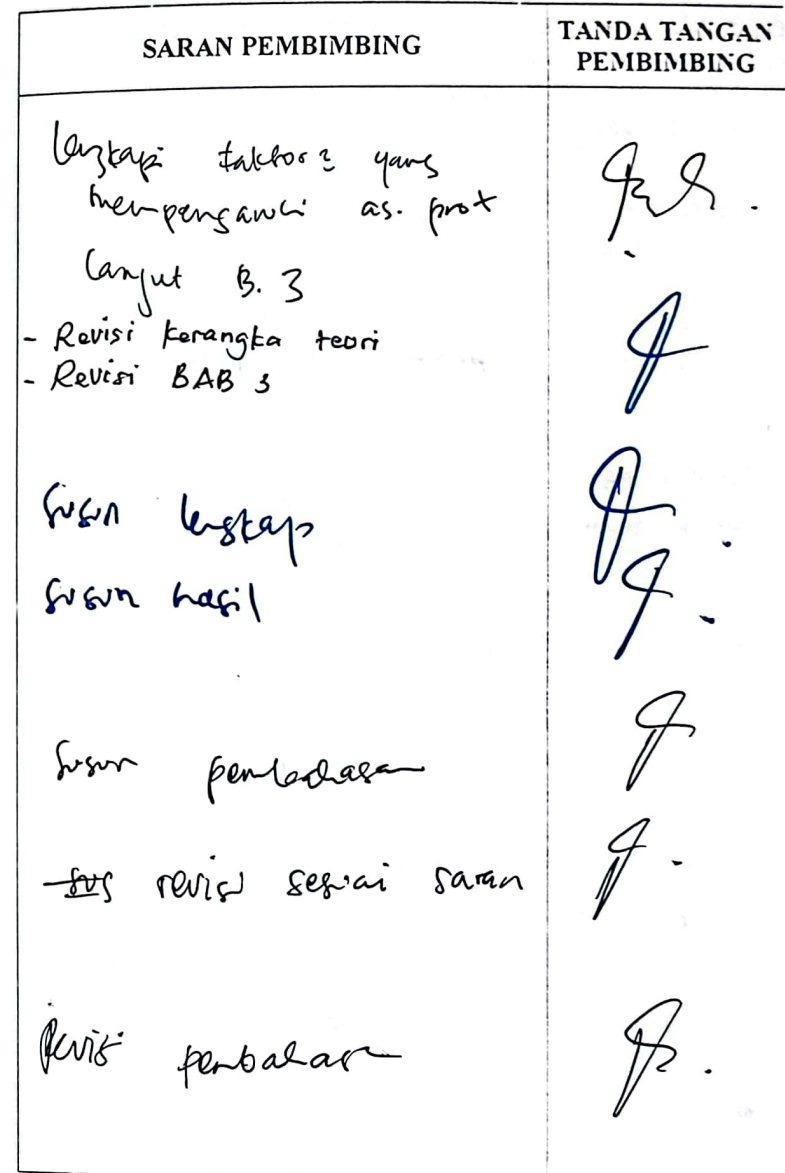 SARAN PEMBIMBING
TANDA TANGAN
PEMBIMBING
lengkapi faktor2 yang
mempengaruhi as. prot
lanjut B. 3
- Revisi kerangka teori
- Revisi BAB 3
Susun lengkap
Susun hasil
Susun pembahasan
sus revisi sesuai saran
Revisi pembahasan